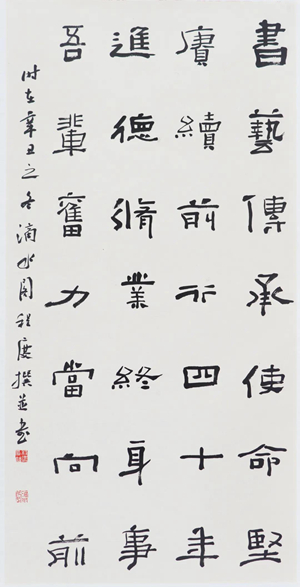 書藝傳承使命堅
賡續前行四十年
進德脩業終身事
吾輩奮力當向前
時在辛丑之冬滴水閣程度撰並書